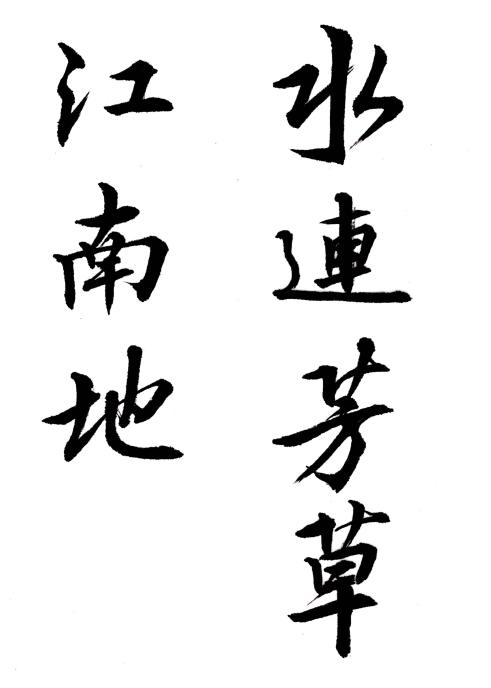 水連芳草
江南地